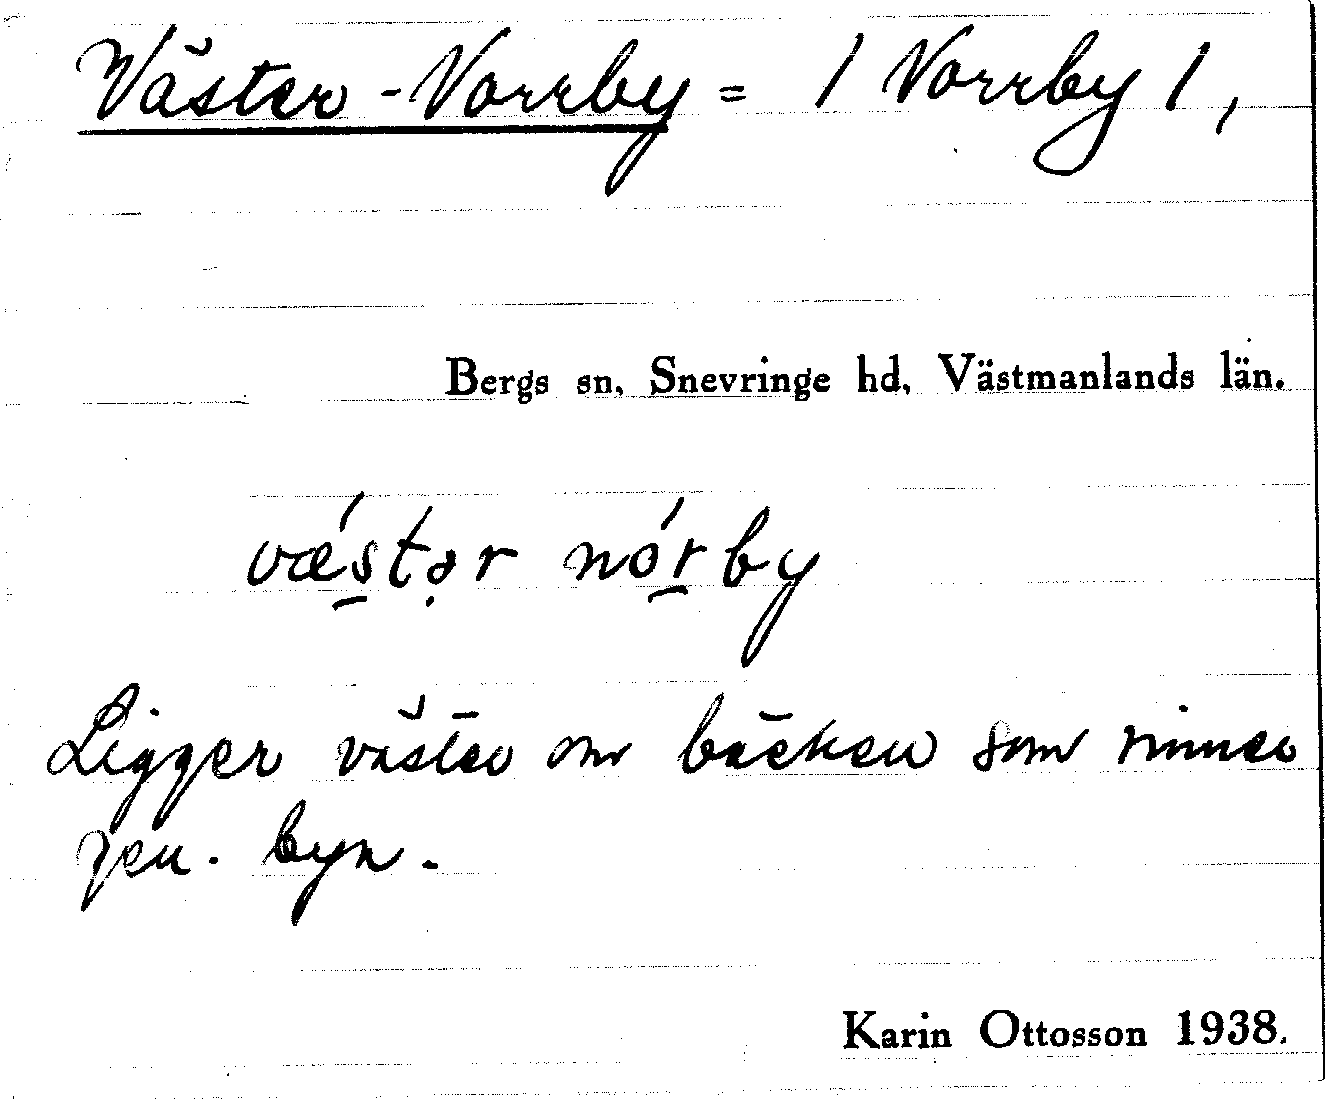 Väster-Norrby = / Norrby /,
Bergs sn, Snevringe hd, Västmanlands län.
vǽ̱stər nó̱rby
Ligger väster om bäcken som rinner
gen. byn.
Karin Ottosson 1938.